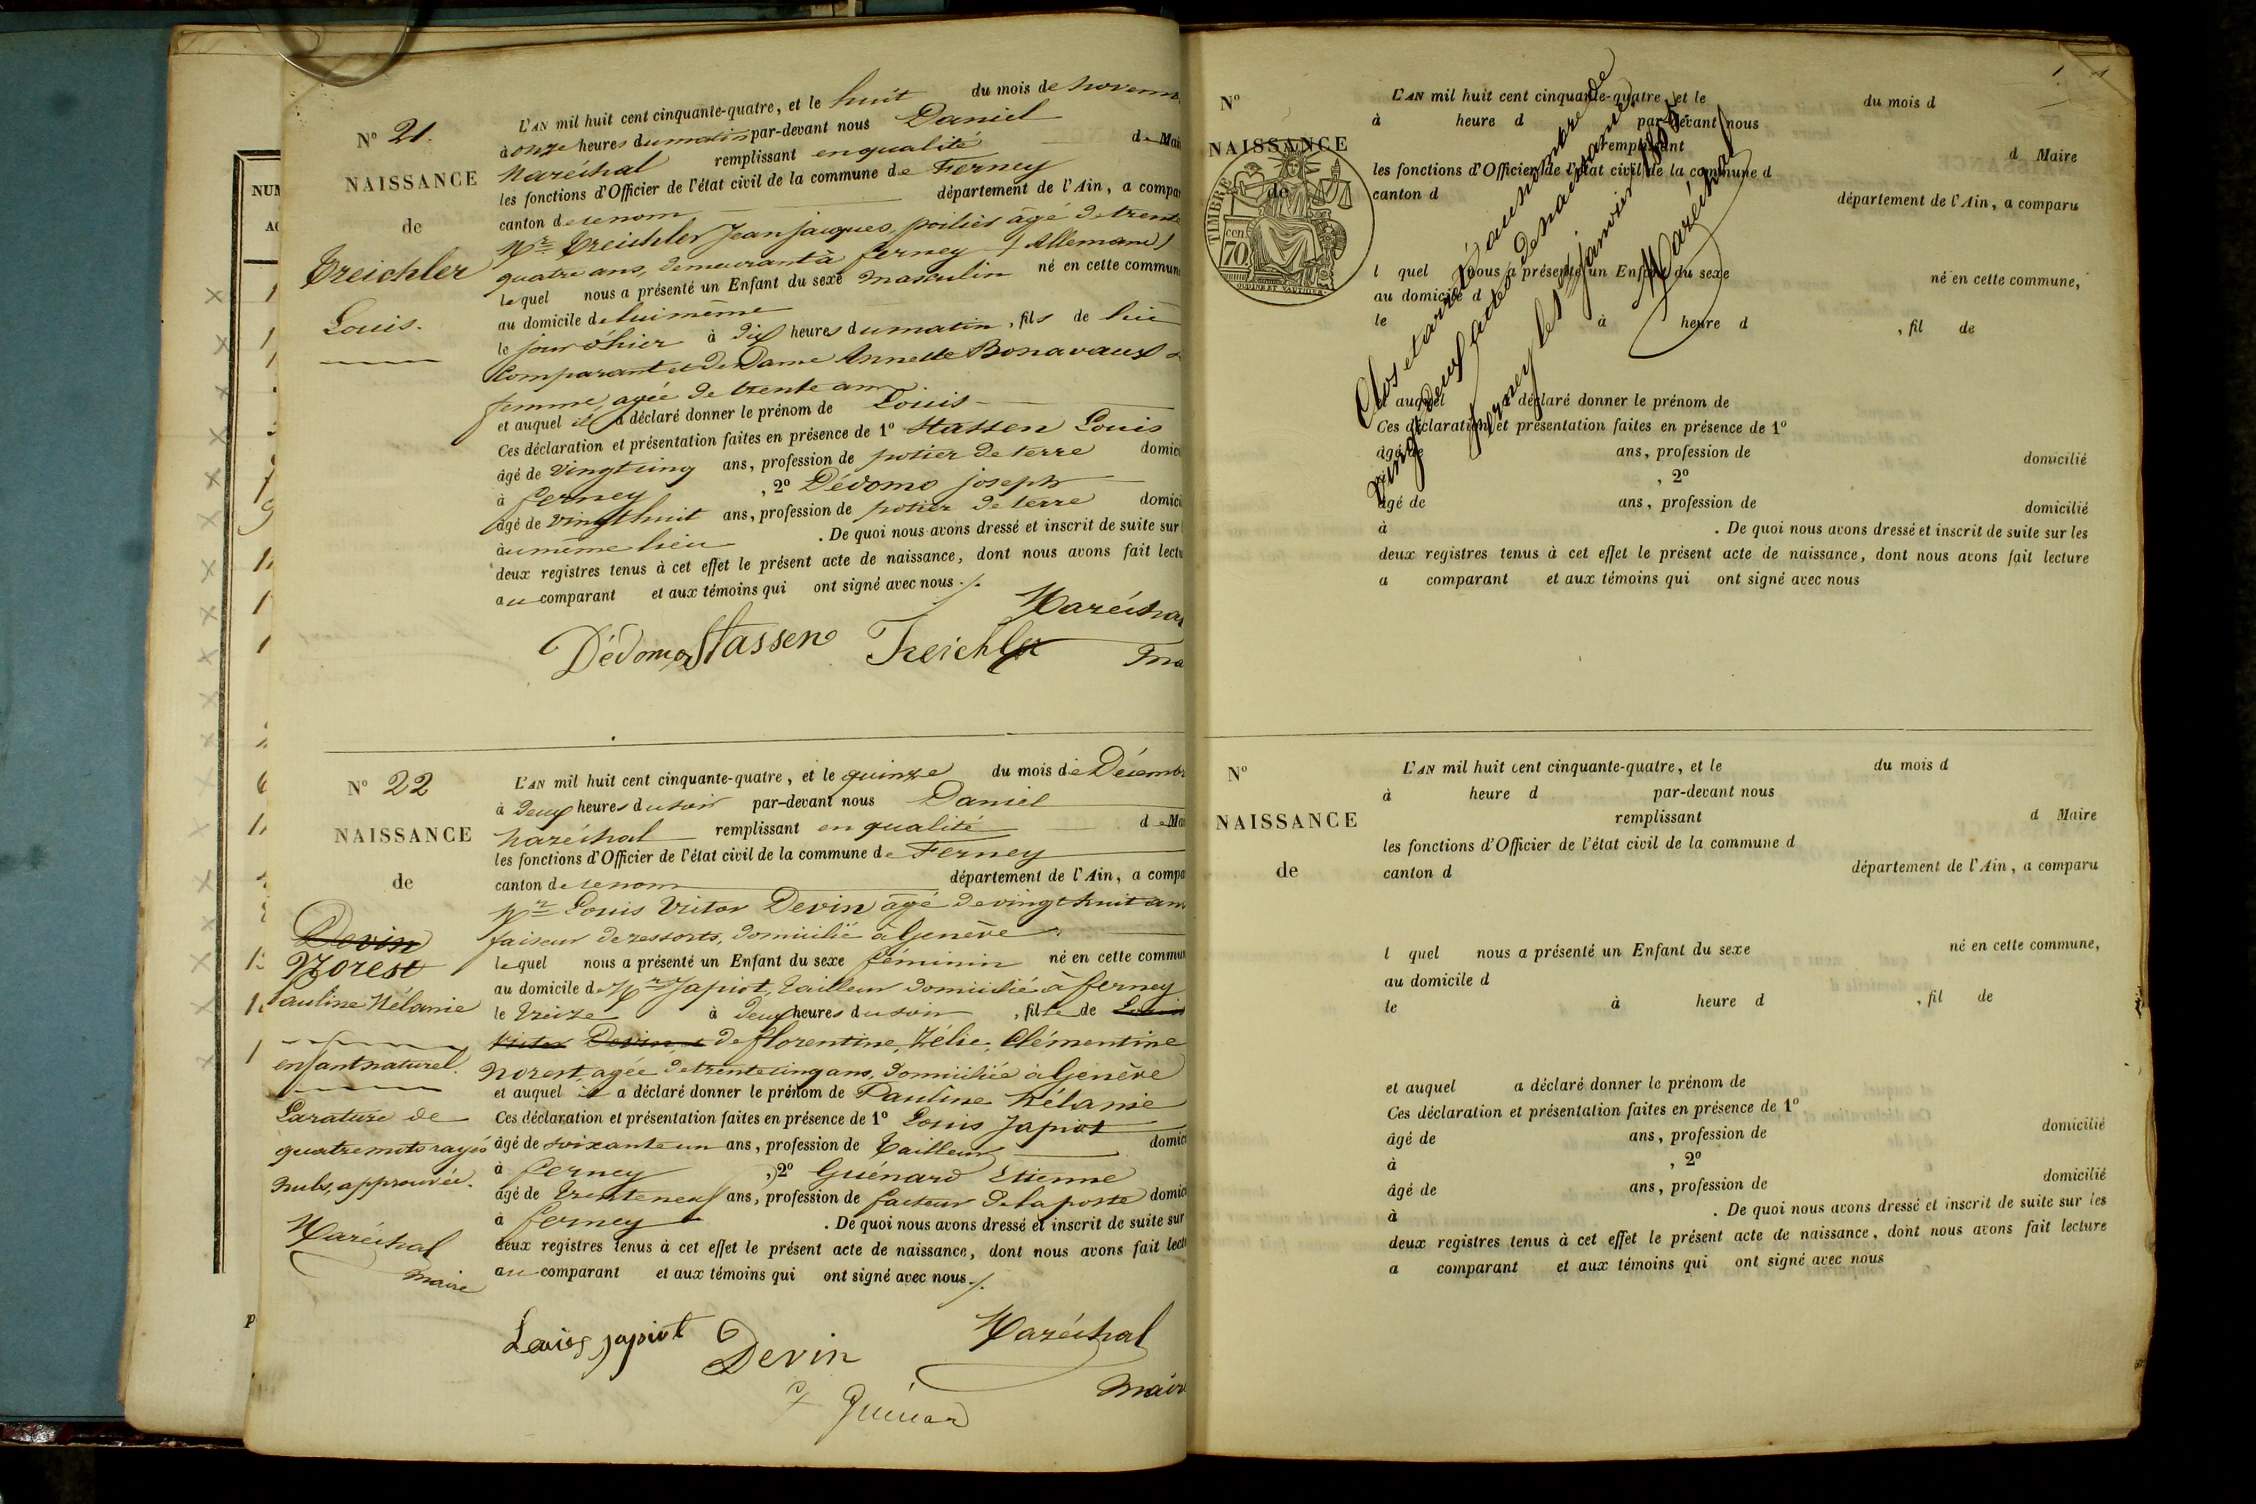 N° 21.
NAISSANCE
de
Treichler
Louis.
L'AN mil huit cent cinquante-quatre, et le huit du mois de novem
à onze heures du matin par-devant nous Daniel
Maréchal remplissant en qualité de Mai
les fonctions d'Officier de l'état civil de la commune de Ferney
canton de ce nom département de l'Ain, a compa
Mr Treichler Jean jacques, potier âgé de trente
quatre ans, demeurant à ferney (Allemand)
lequel nous a présenté un Enfant du sexe masculin né en cette commun
au domicile de lui même
le jour d'hier à dix heures du matin, fils de lui
Comparant et de Dame Annette Bonavaux
femme, agée de trente ans
et auquel il a déclaré donner le prénom de Louis
Ces déclaration et présentation faites en présence de 1° Stassen Louis
âgé de vingt cinq ans, profession de potier de terre domici
à ferney, 2° Dédomo joseph
âgé de vingt huit ans, profession de potier de terre domici
au même lieu. De quoi nous avons dressé et inscrit de suite sur
deux registres tenus à cet effet le présent acte de naissance, dont nous avons fait lectu
au comparant et aux témoins qui ont signé avec nous./.
Maréchal
Dédomo Stassen Treichler Ma
N° 22
NAISSANCE
de
Devin
Norest
Pauline Mélanie
enfant naturel.
Larature de
quatre mots rayés
nuls, approuvée.
Maréchal
maire
L'AN mil huit cent cinquante-quatre, et le quinze du mois de Décembr
à deux heures du soir par-devant nous Daniel
Maréchal remplissant en qualité de Mai
les fonctions d'Officier de l'état civil de la commune de Ferney
canton de ce nom département de l'Ain, a compa
Mr Louis Victor Devin âgé de vingt huit ans
faiseur de ressorts, domicilié à Genève
lequel nous a présenté un Enfant du sexe féminin né en cette commun
au domicile de Mr Japiot, tailleur domicilié à ferney
le treize à deux heures du soir, fille de Louis
Victor Devin et de florentine, Zélie, Clémentine
Norest, agée de trente cinq ans, domiciliée à Genève
et auquel il a déclaré donner le prénom de Pauline Mélanie
Ces déclaration et présentation faites en présence de 1° Louis Japiot
âgé de soixante un ans, profession de tailleur domici
à ferney, 2° Guénard Etienne
âgé de trente neuf ans, profession de facteur de la poste domici
à ferney. De quoi nous avons dressé et inscrit de suite sur
deux registres tenus à cet effet le présent acte de naissance, dont nous avons fait lectu
au comparant et aux témoins qui ont signé avec nous./.
Louis japiot Devin Maréchal
Guénard Maire
N°
NAISSANCE
de
TIMBRE
70 cen
L'AN mil huit cent cinquante-quatre, et le du mois d
à heure d par-devant nous
remplissant d Maire
les fonctions d'Officier de l'état civil de la commune d
canton d département de l'Ain, a comparu
l quel nous a présenté un Enfant du sexe né en cette commune,
au domicile d
le à heure d, fil de
et auquel a déclaré donner le prénom de
Ces déclaration et présentation faites en présence de 1°
âgé de ans, profession de domicilié
, 2°
âgé de ans, profession de domicilié
à. De quoi nous avons dressé et inscrit de suite sur les
deux registres tenus à cet effet le présent acte de naissance, dont nous avons fait lecture
a comparant et aux témoins qui ont signé avec nous
Clos et arrêté au nombre de
vingt deux actes de naissance
ferney le 1er janvier 1855
Maréchal
N°
NAISSANCE
de
L'AN mil huit cent cinquante-quatre, et le du mois d
à heure d par-devant nous
remplissant d Maire
les fonctions d'Officier de l'état civil de la commune d
canton d département de l'Ain, a comparu
l quel nous a présenté un Enfant du sexe né en cette commune,
au domicile d
le à heure d, fil de
et auquel a déclaré donner le prénom de
Ces déclaration et présentation faites en présence de 1°
âgé de ans, profession de domicilié
à, 2°
âgé de ans, profession de domicilié
à. De quoi nous avons dressé et inscrit de suite sur les
deux registres tenus à cet effet le présent acte de naissance, dont nous avons fait lecture
a comparant et aux témoins qui ont signé avec nous